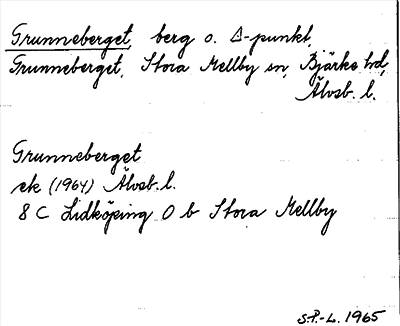 Grunneberget, berg o. Δ-punkt,
Grunneberget, Stora Mellby sn, Bjärke hd,
Älvsb. l.
Grunneberget
ek (1964) Älvsb. l.
8 C Lidköping 0 b Stora Mellby
S.P.-L. 1965